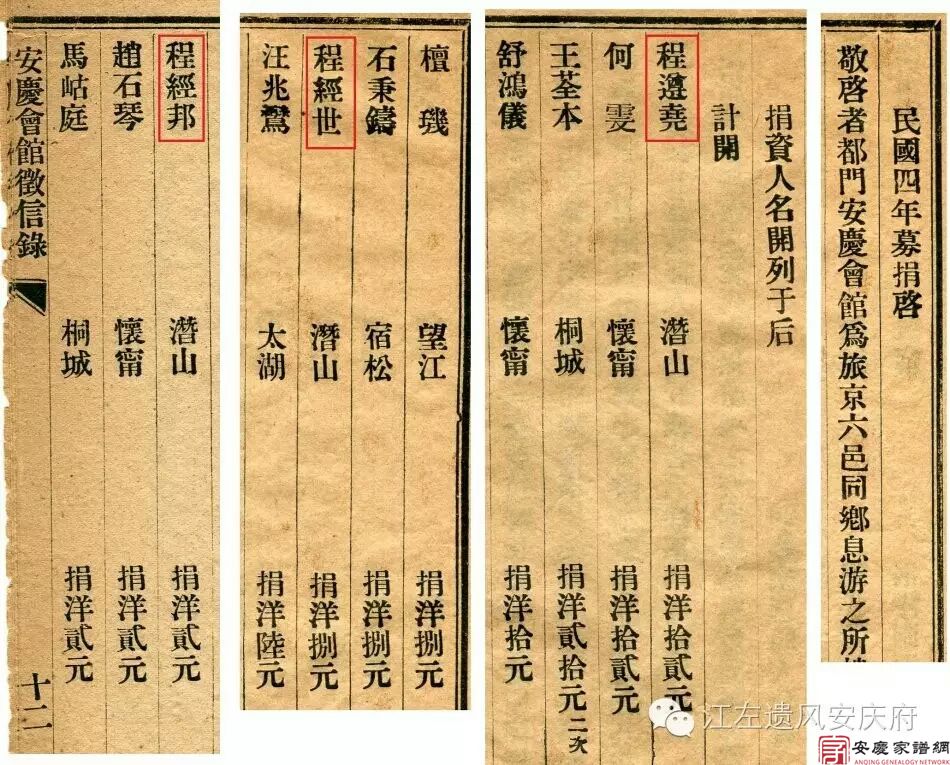 民國四年募捐啓
敬啓者都門安慶會館爲旅京六邑同鄉息游之所
捐資人名開列于后
計開
程遵堯 潛山 捐洋拾貳元
何雯 懷甯 捐洋拾貳元
王荃本 桐城 捐洋貳拾元二次
舒鴻儀 懷甯 捐洋拾元
檀璣 望江 捐洋捌元
石秉鑄 宿松 捐洋捌元
程經世 潛山 捐洋捌元
汪兆鸞 太湖 捐洋陸元
程經邦 潛山 捐洋貳元
趙石琴 懷甯 捐洋貳元
馬岵庭 桐城 捐洋貳元
安慶會館徵信錄
十二
江左遗风安庆府
安慶家譜網
ANQING GENEALOGY NETWORK